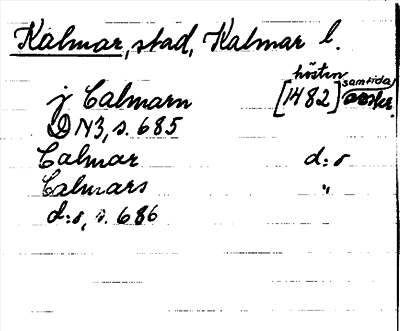 Kalmar, stad, Kalmar l.
hösten samtida
j Calmarn [1482] avskr.
DN3, s. 685
Calmar d:o
Calmars "
d:o, s. 686